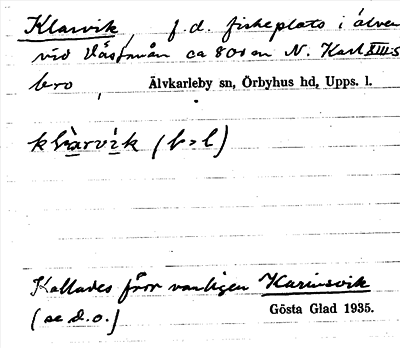 Klarvik, f.d. fiskeplats i älven
vid Västmån ca 800 m N. Karl XIII:s
bro, Älvkarleby sn, Örbyhus hd, Upps. l.
klàrvìk (b>l)
Kallades förr vanligen Karinsvik
(se d.o.) Gösta Glad 1935.